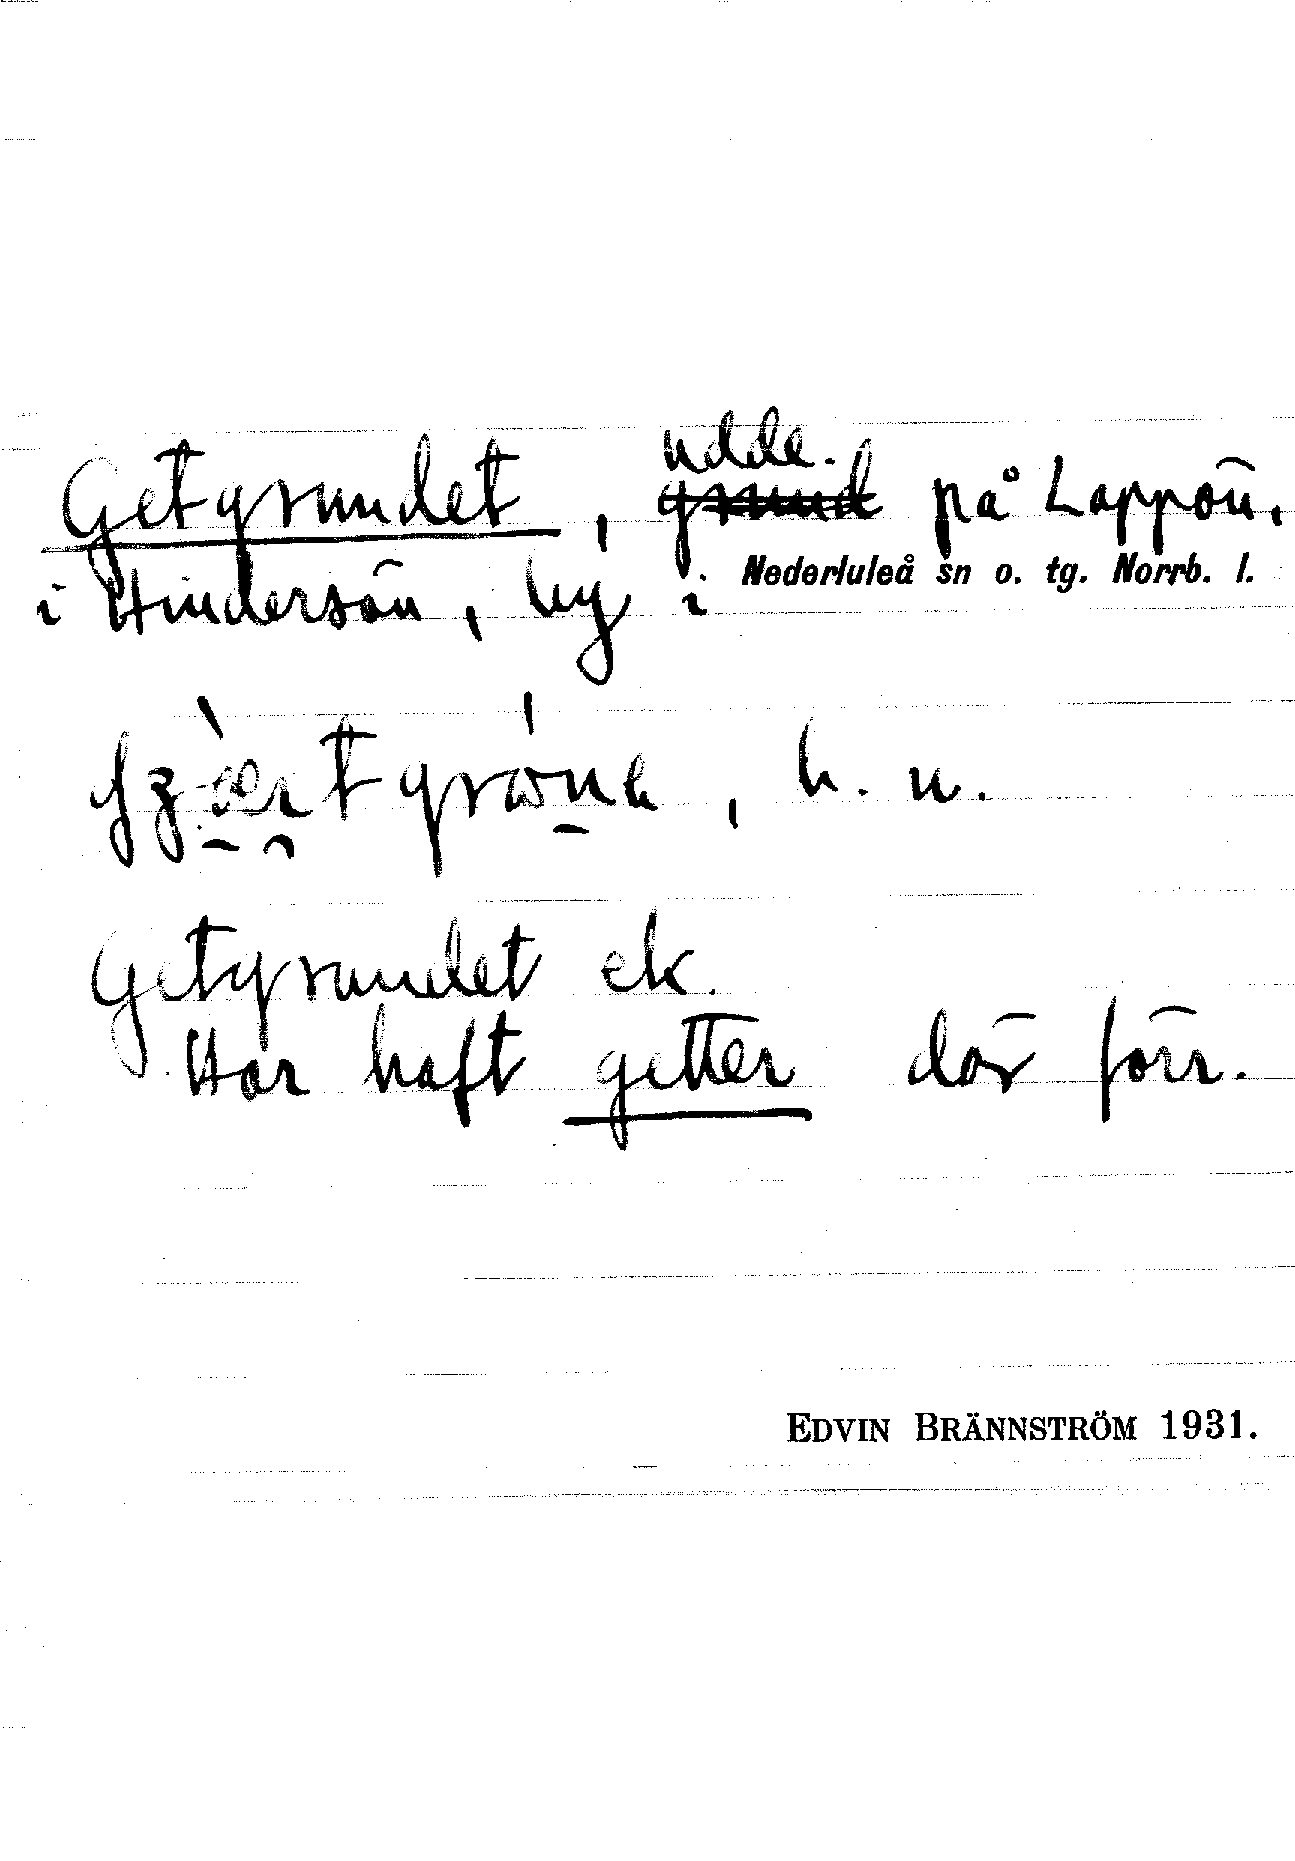 Getgrundet, udde. på Lappön,
i Hindersön, by i Nederluleå sn o. tg. Norrb. l.
, b. n.
Getgrundet ek.
Har haft getter där förr.
EDVIN BRÄNNSTRÖM 1931.